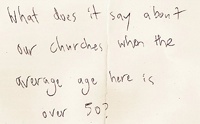 What does it say about
our churches when the
average age here is
over 50?